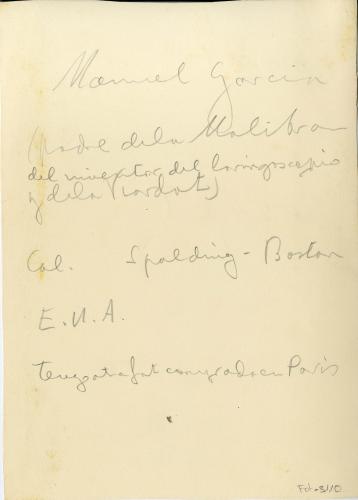 Manuel Garcia
(padre de la Malibran
del inventor del laringoscopio
y de la Viardot)
Col. Spalding - Boston
E.U.A.
tengo otra fot comprada en Paris
Fot-3110